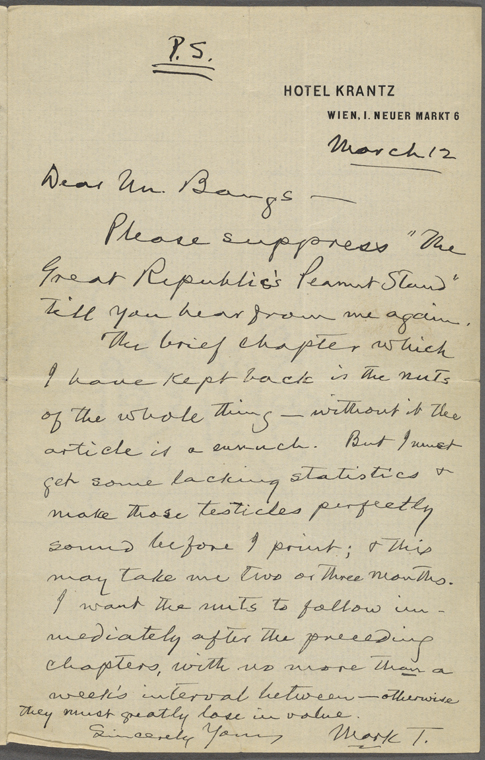 P.S.
HOTEL KRANTZ
WIEN, I. NEUER MARKT 6
March 12
Dear Mr. Bangs —
Please suppress "The
Great Republic's Peanut Stand"
till you hear from me again.
The brief chapter which
I have kept back is the nuts
of the whole thing — without it the
article is a eunuch. But I must
get some lacking statistics &
make those testicles perfectly
sound before I print; & this
may take me two or three months.
I want the nuts to follow im-
mediately after the preceding
chapters, with no more than a
week's interval between — otherwise
they must greatly lose in value.
Sincerely Yours
Mark T.